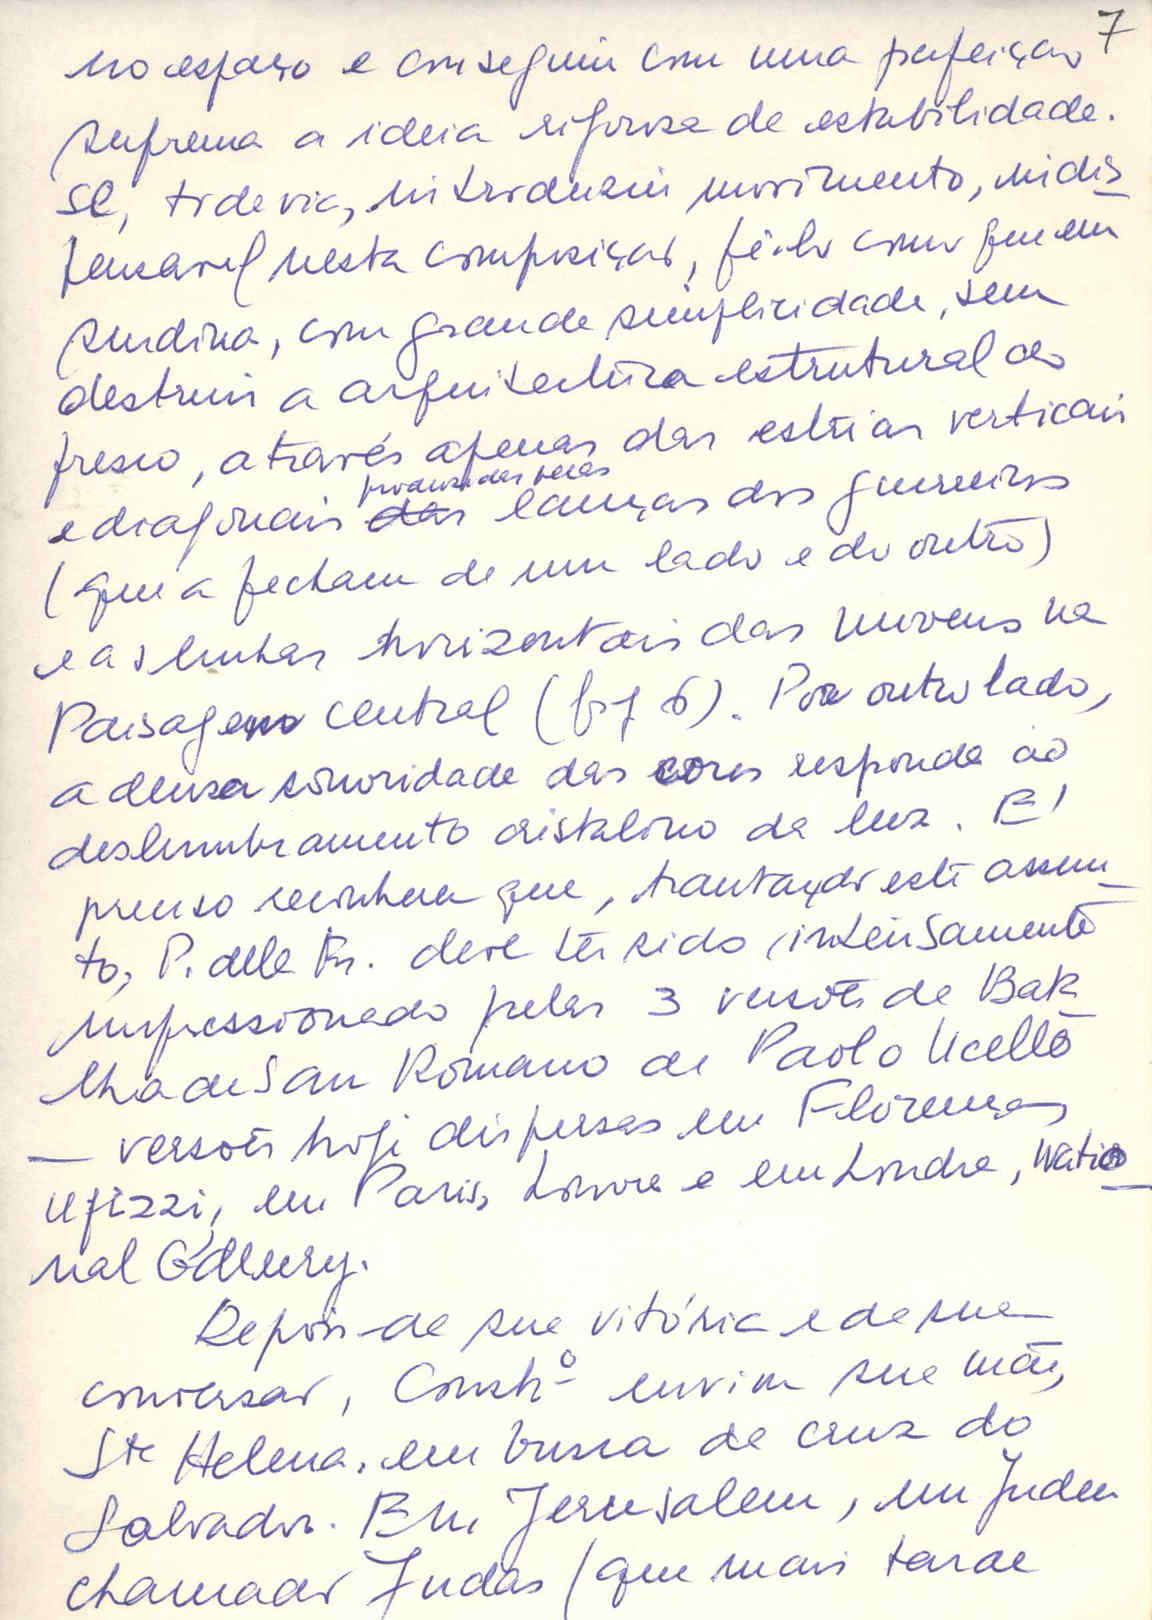 7
no espaço e conseguiu com uma perfeição
suprema a ideia rigorosa de estabilidade.
Se, todavia, introduziu movimento, indis-
pensavel nesta composição, fê-lo como que em
surdina, com grande simplicidade, sem
destruir a arquitectura estrutural do
fresco, através apenas das estrias verticais
produzidas pelas
e diagonais das lanças dos guerreiros
(que a fecham de um lado e do outro)
e as linhas horizontais das nuvens na
Paisagem central (fig 6). Por outro lado,
a densa sonoridade das cores responde ao
deslumbramento cristalino da luz. E'
preciso reconhecer que, tratando este assun-
to, P. della Fr. deve ter sido intensamente
impressionado pelas 3 versões da Bata-
lha de San Romano de Paolo Ucello
— versões hoje dispersas em Florença,
Ufizzi, em Paris, Louvre e em Londres, Natio-
nal Gallery.
Depois de sua vitória e de sua
conversão, Constº enviou sua mãe,
Sta Helena, em busca da cruz do
Salvador. Em Jerusalem, um Judeu
chamado Judas (que mais tarde